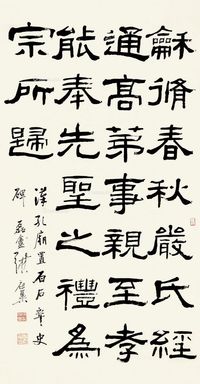 龢脩春秋嚴氏經
通高第事親至孝
能奉先聖之禮為
宗所歸
漢孔廟置百石卒史
碑